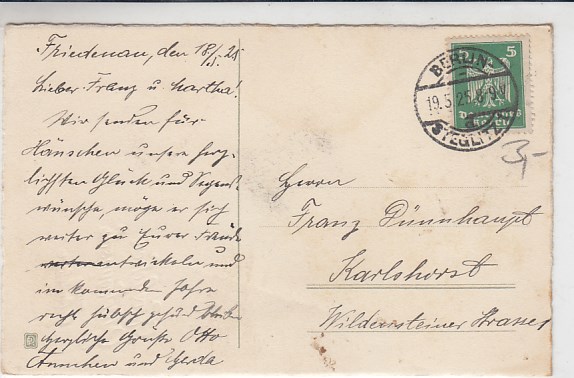 Friedenau, den 18/5.25
Lieber Franz u. Martha!
Wir senden für
Hänschen unsere herz-
lichsten Glück und Segens-
wünsche, möge er sich
weiter zu Eurer Freude
entwickeln und
im kommenden Jahre
recht hübsch gesund bleiben
Herzliche Grüße Otto
Ännchen und Gerda
BERLIN-
19.5.25.
STEGLITZ
5
Deutsches
Reich
3,-
Herrn
Franz Dünnhaupt
Karlshorst
Wildensteiner Strasse 1